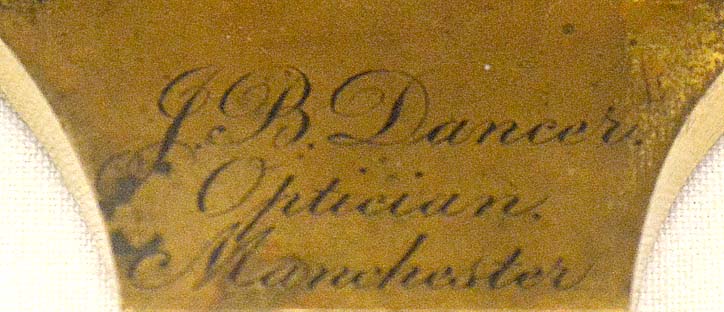 J. B. Dancer.
Optician.
Manchester